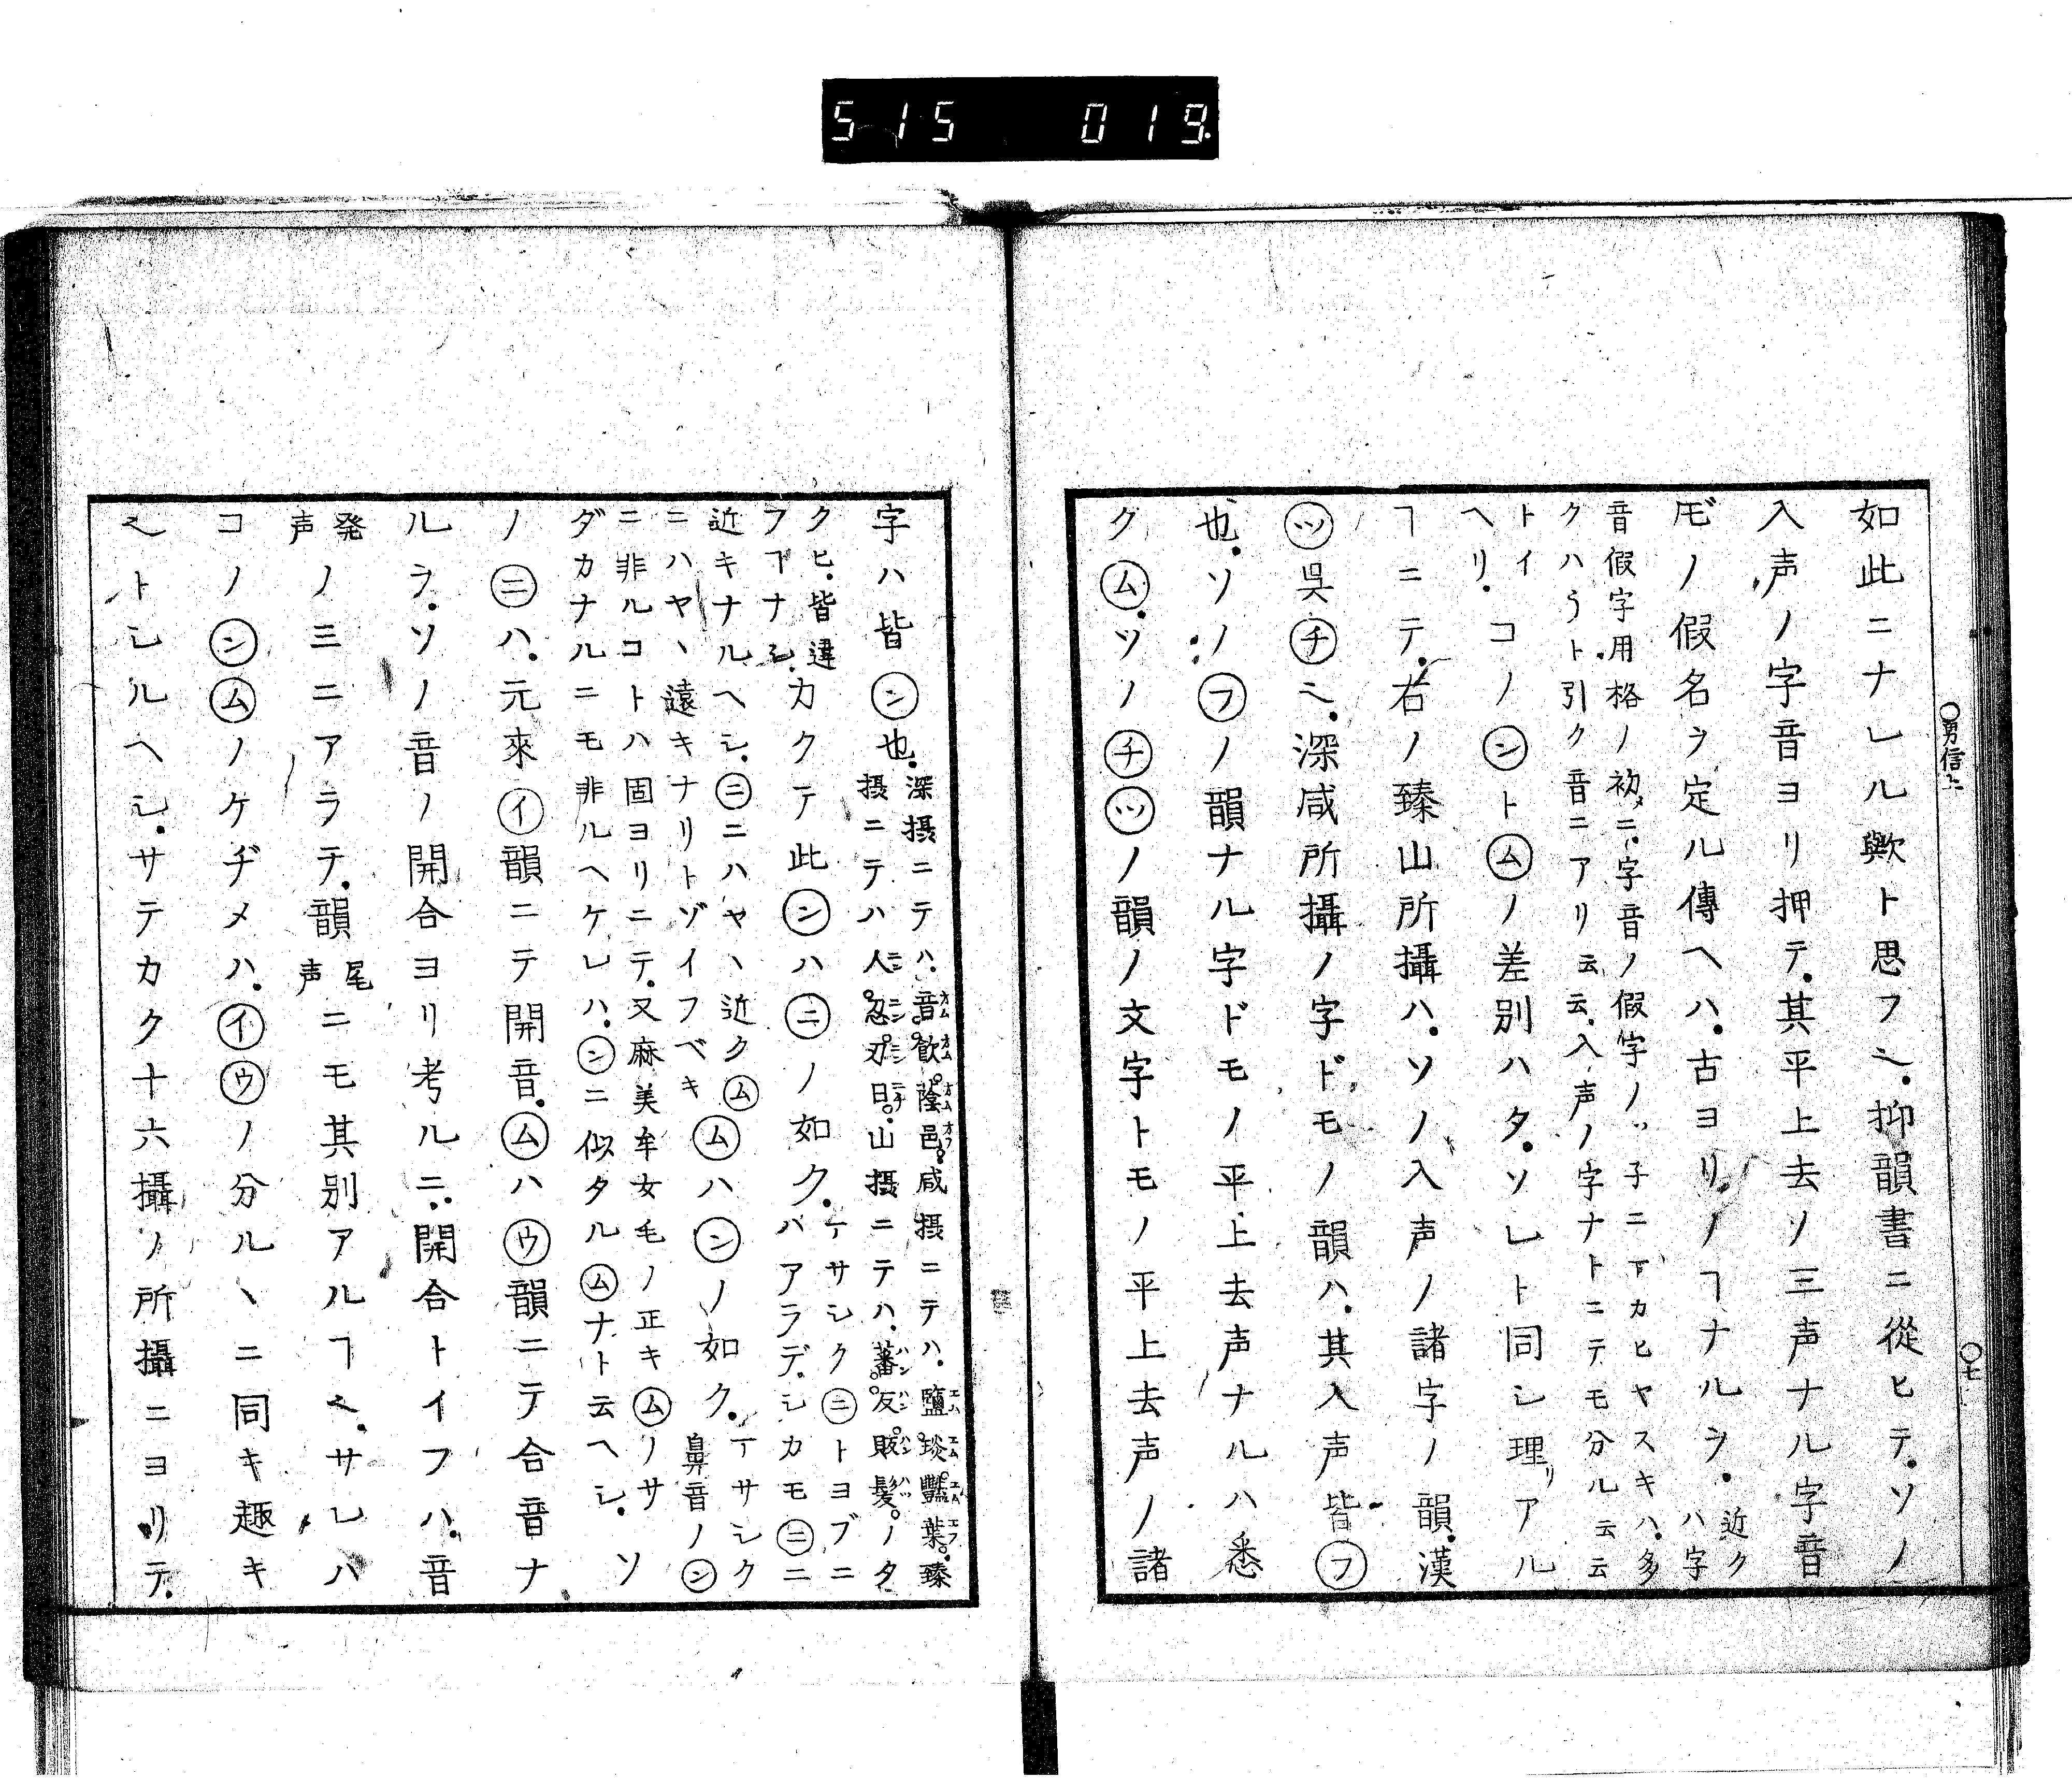 515 019
○男信上
○七
如此ニナレル歟ト思フヘ.抑韻書ニ從ヒテ.ソノ
入声ノ字音ヨリ押テ.其平上去ソ三声ナル字音
ノ假名ヲ定ル傳ヘハ.古ヨリノヿナルヲ.近ク
ハ字
音假字用格ノ初ニ.字音ノ假字ノッ子ニマカヒヤスキハ.多
クハうト引ク音ニアリ云云.入声ノ字ナトニテモ分ル云云
トイ
ヘリ.
コノ㋟トムノ差別ハタ.ソレト同シ理アル
ヿニテ.右ノ臻山所攝ハ.ソノ入声ノ諸字ノ韻.漢
ツ呉チヘ.深咸所攝ノ字ドモノ韻ハ.其入声皆フ
也.ソノフノ韻ナル字ドモノ平.上去声ナルハ悉
クム.ソノチツノ韻ノ文字トモノ平上去声ノ諸
字ハ皆ン也.
深摂ニテハ.音歆蔭邑.咸摂ニテハ.鹽琰豔葉.臻
摂ニテハ人忍刃日.山摂ニテハ.蕃 販髮.ノタ
クヒ.皆違
フヿナシ.
カクテ此ンハニノ如ク.
テサシクニトヨブニ
ハアラデ.シカモニニ
近キナルヘシ.ニニハヤヽ近クム
ニハヤヽ遠キナリトゾイフベキ
ムハンノ如ク.
テサシク
鼻音ノン
ニ非ルコトハ固ヨリニテ.又麻美牟女毛ノ正キムノサ
ダカナルニモ非ルヘケレハ.ンニ似タルムナト云ヘシ.
ソ
ノニハ.元來イ韻ニテ開音.ムハウ韻ニテ合音ナ
ルヲ.ソノ音ノ開合ヨリ考ルニ.開合トイフハ.音
発
声
ノミニアラテ.韻
尾
声
ニモ其別アルヿヘ.サレハ
コノンムノケヂメハ.イウノ分ルヽニ同キ趣キ
ヘトシルヘシ.サテカク十六攝ノ所攝ニヨリテ.